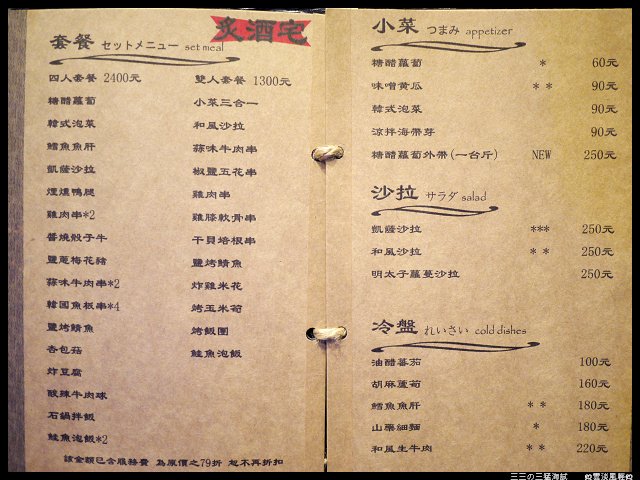 炙酒宅
套餐 セットメニュー set meal
四人套餐 2400元
糖醋蘿蔔
韓式泡菜
鱈魚魚肝
凱薩沙拉
煙燻鴨腿
雞肉串*2
醬燒骰子牛
鹽蔥梅花豬
蒜味牛肉串*2
韓國魚板串*4
鹽烤鯖魚
杏包菇
炸豆腐
酸辣牛肉球
石鍋拌飯
鮭魚泡飯*2
雙人套餐 1300元
小菜三合一
和風沙拉
蒜味牛肉串
椒鹽五花串
雞肉串
雞膝軟骨串
干貝培根串
鹽烤鯖魚
炸雞米花
烤玉米筍
烤飯團
鮭魚泡飯
該金額已含服務費 為原價之79折 恕不再折扣
小菜 つまみ appetizer
糖醋蘿蔔 * 60元
味噌黃瓜 * * 90元
韓式泡菜 90元
涼拌海帶芽 90元
糖醋蘿蔔外帶(一台斤) NEW 250元
沙拉 サラダ salad
凱薩沙拉 *** 250元
和風沙拉 * * 250元
明太子蘿蔓沙拉 250元
冷盤 れいさい cold dishes
油醋蕃茄 100元
胡麻蘆筍 160元
鱈魚魚肝 * * 180元
山藥細麵 * 180元
和風生牛肉 * * 220元
三三の三猛海賊